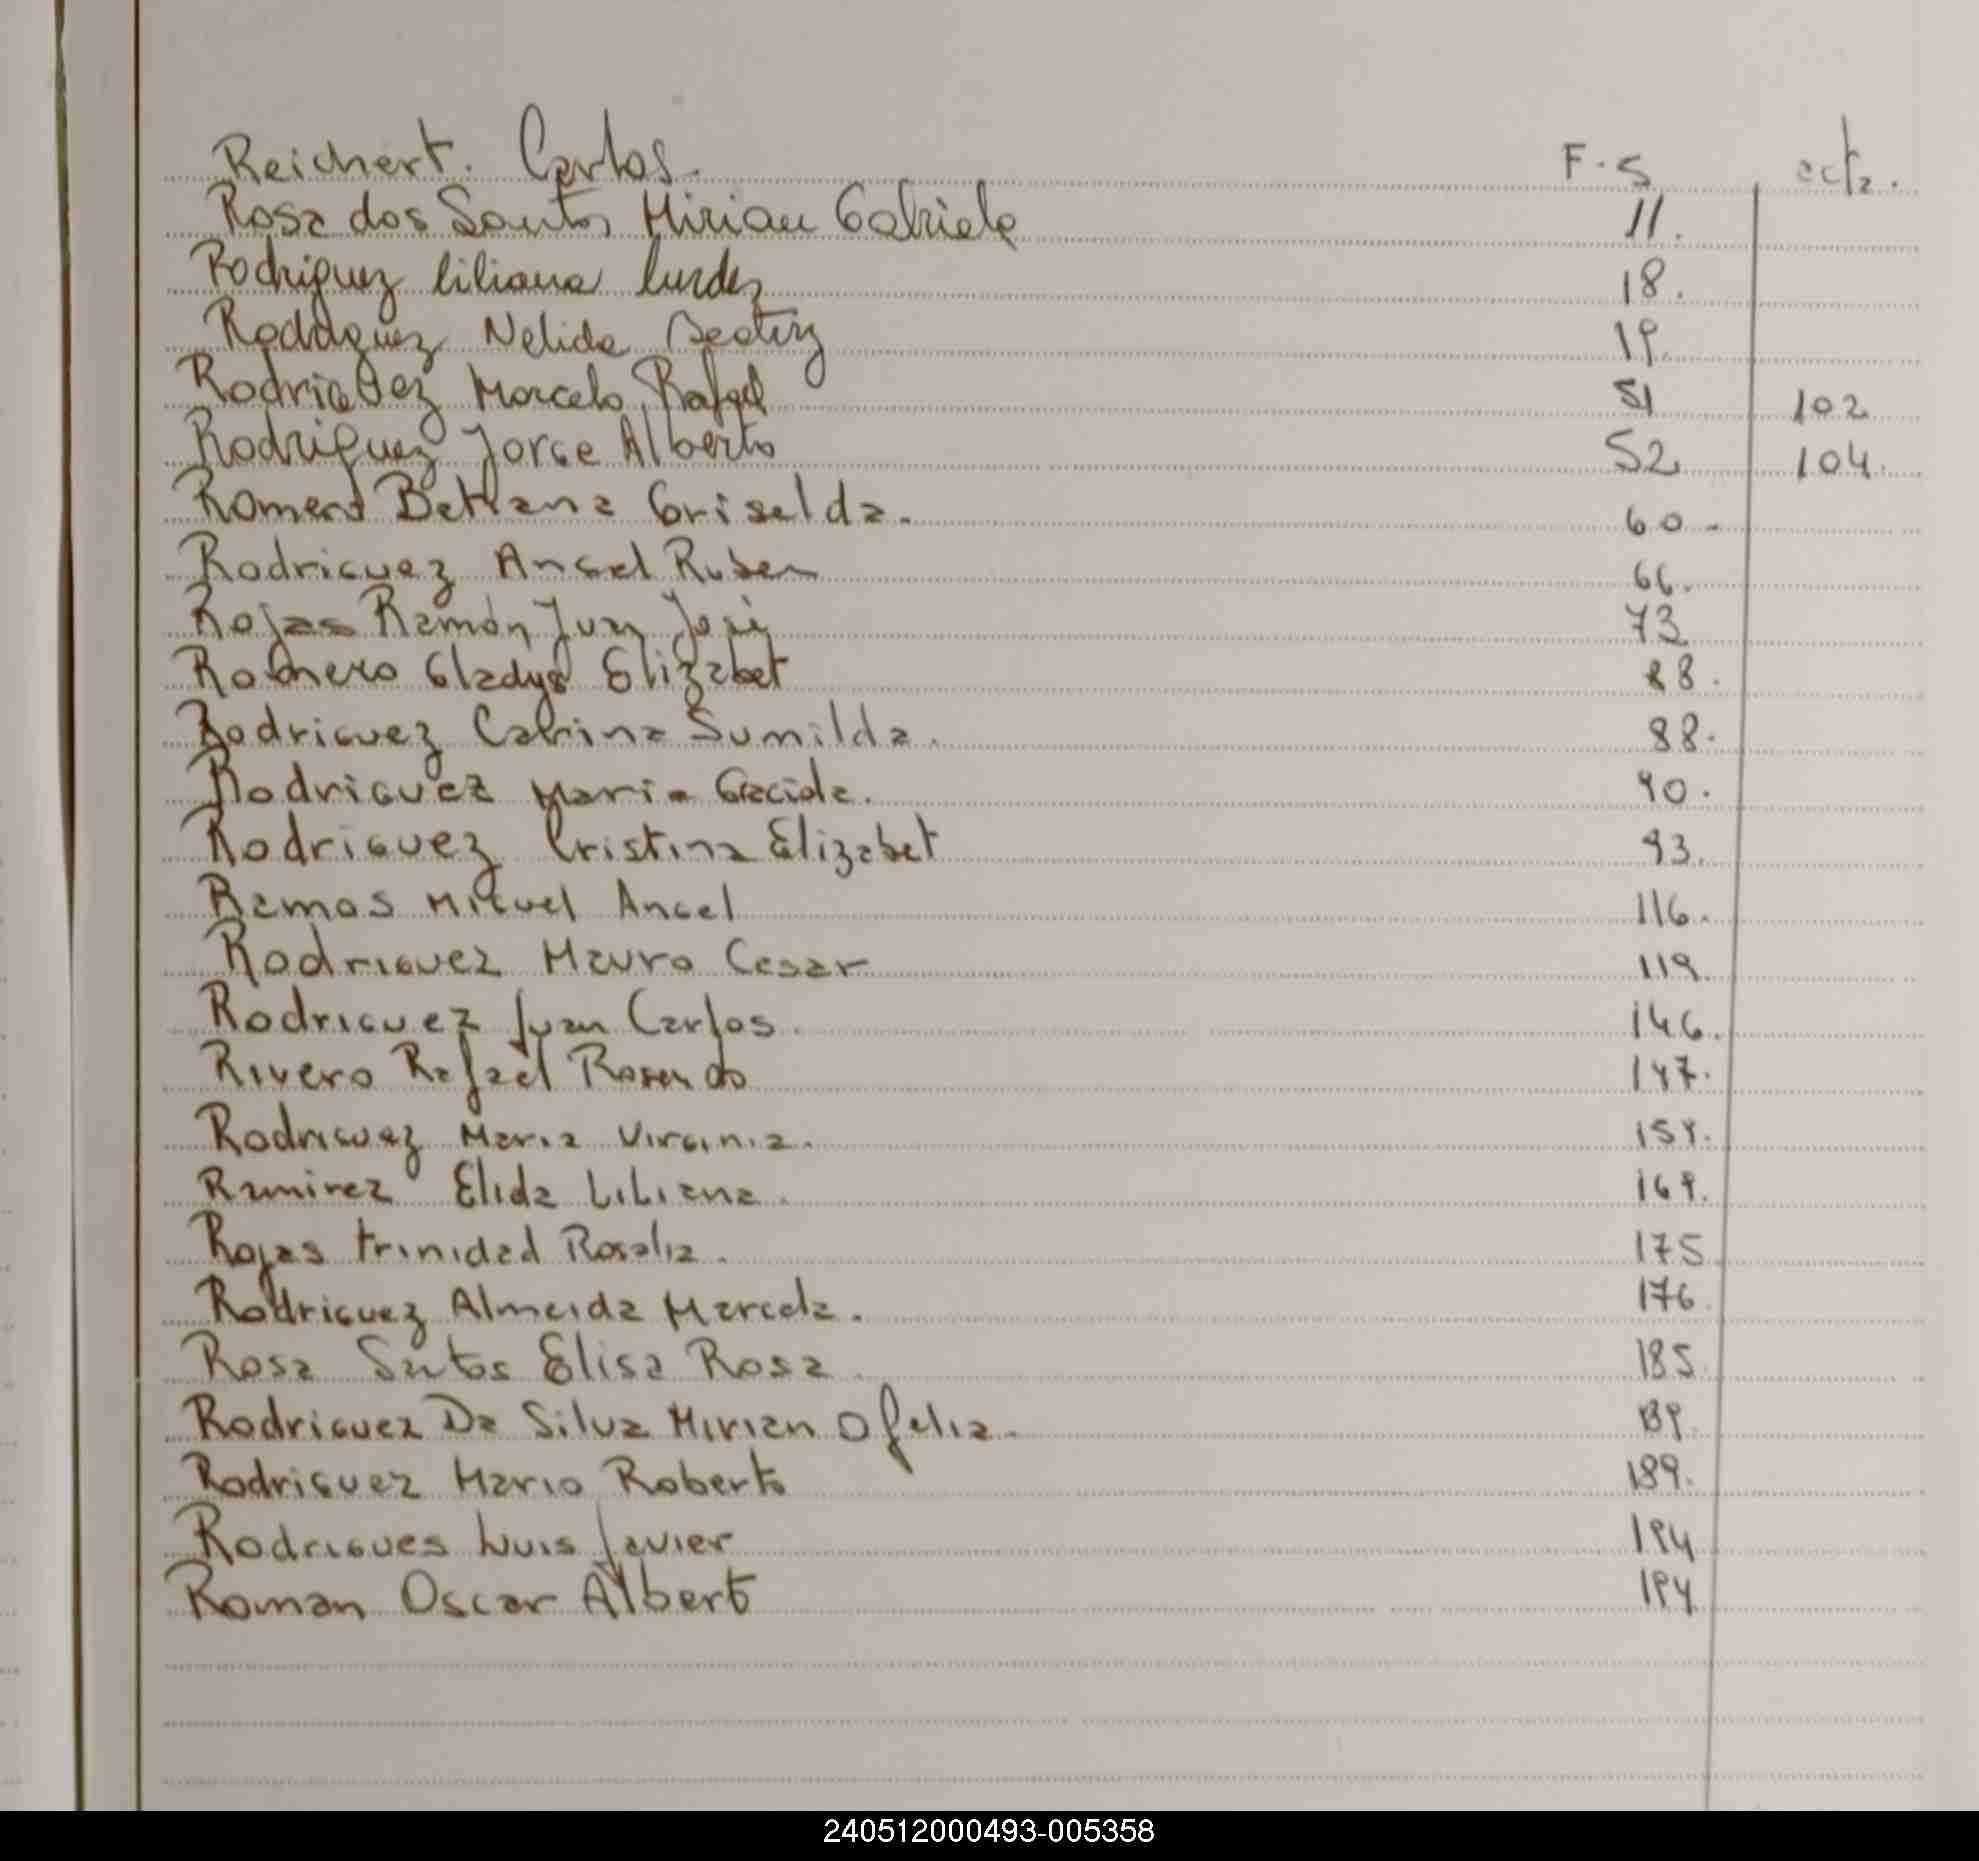 Reichert. Carlos. F. 5 acta.
Rosa dos Santos Mirian Gabriela 11.
Rodriguez Liliana Lurdez 18.
Rodriguez Nelida Beatriz 19.
Rodriguez Marcelo Rafael 51 102
Rodriguez Jorge Alberto 52 104.
Romero Betiana Griselda. 60.
Rodriguez Angel Ruben 66.
Rojas Ramón Juan José 73
Romero Gladys Elizabet 88.
Rodriguez Cabrina Sumilda. 88.
Rodriguez Maria 90.
Rodriguez Cristina Elizabet 93.
Ramos Miguel Angel 116.
Rodriguez Mauro Cesar 119.
Rodriguez Juan Carlos. 146.
Rivero Rafael Rosendo 147.
Rodriguez Maria Virginia.
Ramirez Elida Liliana. 169.
Rojas Trinidad Rosalia. 175
Rodriguez Almeida Marcela. 176.
Rosa Santos Elisa Rosa. 185.
Rodriguez Da Silva Mirian Ofelia. 189.
Rodriguez Mario Roberto 189.
Rodrigues Luis Javier 194
Roman Oscar Alberto 194
240512000493-005358